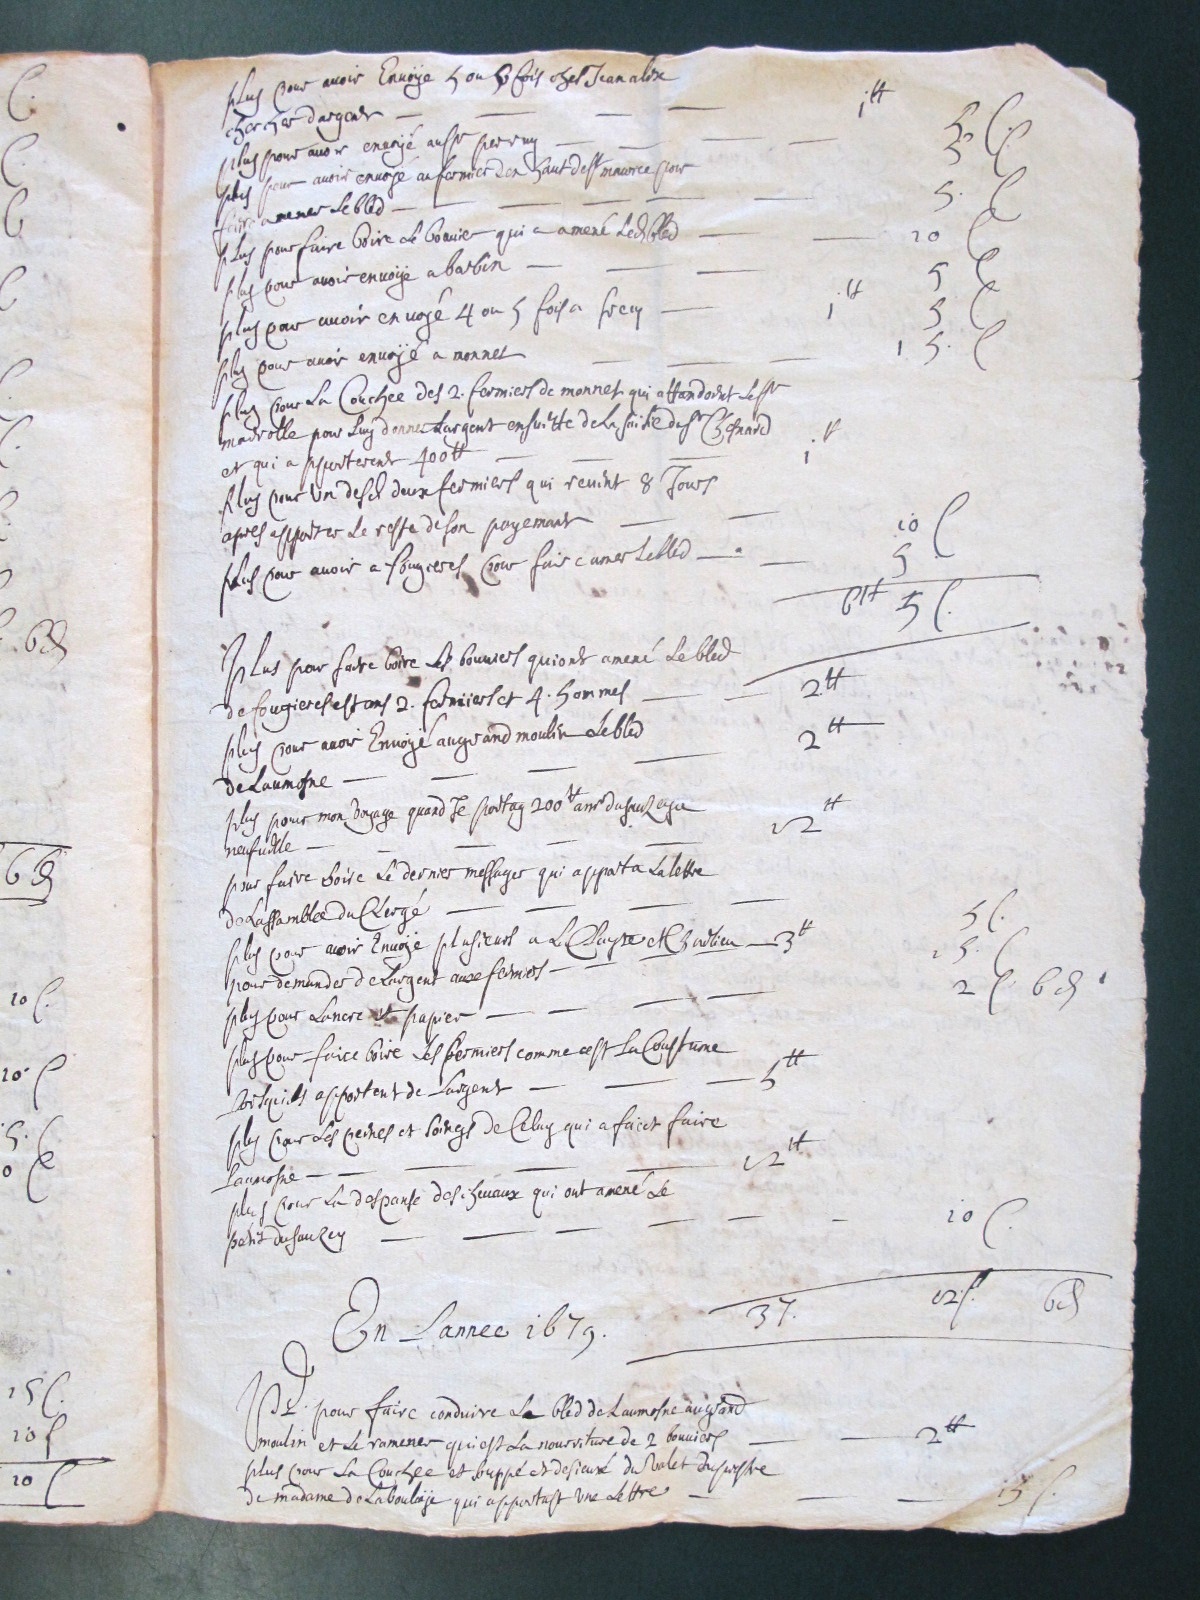 plus pour avoir Envoÿe 5 ou 6 fois chez Jean alix
chercher dargent — — — 1tt 5 s.
plus pour avoir envoyé — — — 5 s.
plus pour avoir envoyé au fermier den haut de st maurice pour
faire amener Le bled — — — 5. s
plus pour faire boire Le bouvier qui a amené Led. bled — — 10 s
plus pour avoir envoÿé a barbin — — — 5 s
plus pour avoir envoyé 4 ou 5 fois a — 1tt 5 s
plus pour avoir envoÿé a monnet — — — 15. s
plus pour La Couchee des 2. fermiers de monnet qui attandoint Le sr
marolle pour Luy donner Largent ensuitte de La saisie du sr
et qui apporterent 400tt — — — 1tt
plus pour un desd. deux fermiers qui revint 8 Jours
apres apporter Le reste de son payemant — — 10 s
plus pour avoir a fougieres pour faire amer Le bled — — 5
6tt 5 s.
Plus pour faire boire Les bouviers qui ont amené Le bled
de fougieres estans 2. fermiers et 4. hommes — — 2tt
plus pour avoir Envoÿé au grand moulin Le bled
de Laumosne — — — — 2tt
plus pour mon voyage quand Je portay 200tt a mr du sauzay a
neufville — — — — 12tt
pour faire boire Le dernier messager qui apporta La lettre
de Lassamblée du Clergé — — — — 5 s.
plus pour avoir Envoÿé plusieurs a et — 3tt 15. s
pour demander de Largent aux fermiers — —
plus pour Lancre et papier — — — — 2 s 6 d
plus pour faire boire Les fermiers comme cest La Coustume
Lorsquils apportent de Largent — — — 5tt
plus pour Les peines et soings de Celuy qui a faict faire
Laumosne — — — — 12tt
plus pour La despanse des chevaux qui ont amené Le
petit du sauzey — — — — — 10 s.
37. 12 s. 6 d
En Lannee 1679.
P.t pour faire conduire Le bled de Laumosne au grand
moulin et Le ramener qui est La nourriture de 2 bouviers — — 2tt
plus pour La Couchee et souppé et desieuné du valet
de madame de Laboulaÿe qui apportast une Lettre — — — 15 s.
s.
s.
s
s
s.
s.
6 d
6 d
10 s.
10 s
15. s
10 s
15 s.
10 s
10 s